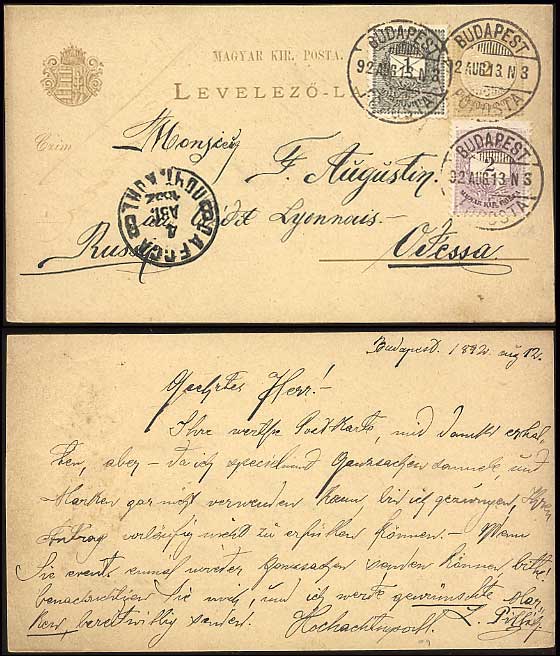 MAGYAR KIR. POSTA.
LEVELEZŐ-L
BUDAPEST
92 AUG 13 N 3
FŐPOSTA
BUDAPEST
92 AUG 13 N 3
FŐPOSTA
BUDAPEST
92 AUG 13 N 3
1
2
2
MAGYAR KIR. POSTA
Czim
Monsieur
F. Augustin
Crédit Lyonnais
Odessa
Russ
ОДЕССА
4
АВГ.
1892
Budapest. 1892. aug 12.
Geehrtes Herr!-
Ihre werthe Postkarte, mit dankt erhal-
ten, aber – da ich speciel und Ganzsachen samele, und
Marken gar nicht verwenden kann bin ich gezwungen, Ihren
Antrag vorläufig nicht zu erfühlen können. – Wenn
Sie event. einmal wieder Ganzsachen senden können bitte
benachrichtigen Sie mich, und ich werde gewünschte Mar-
ken, bereitwilig senden. Hochachtungsvoll.